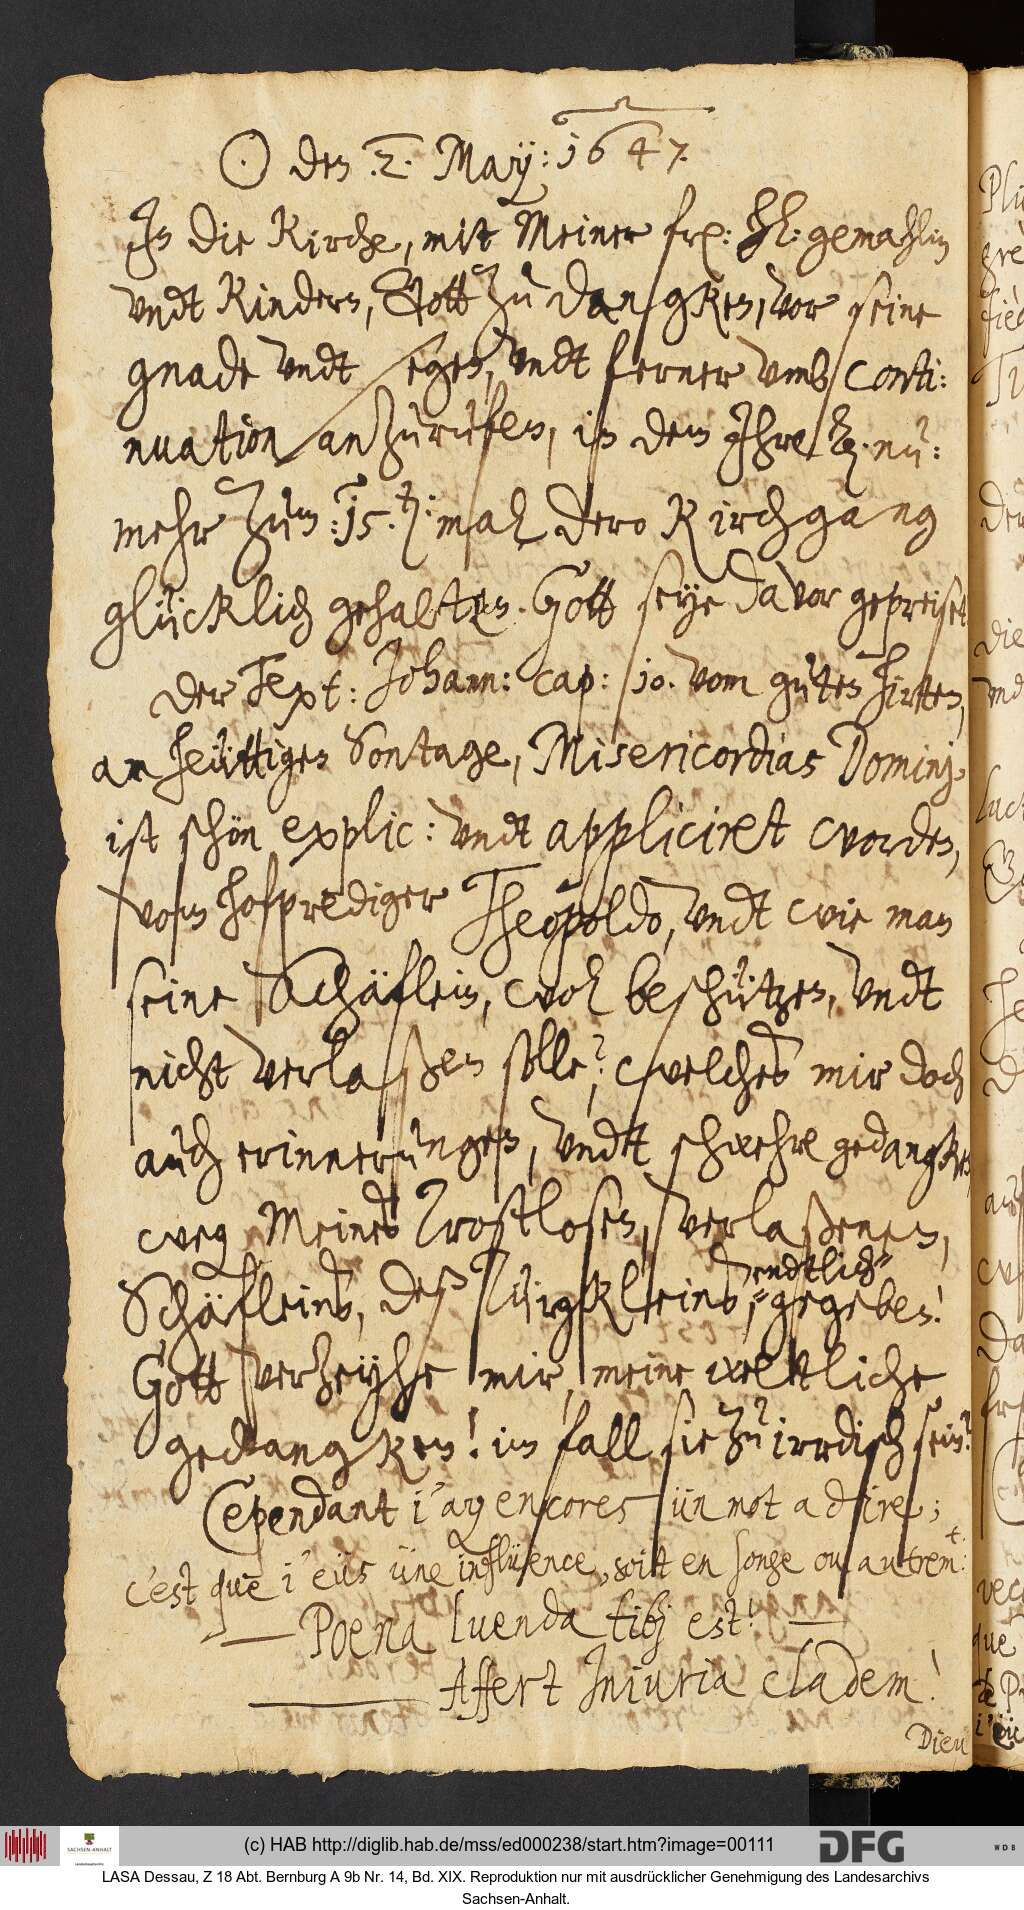 ☉ den 2. May: 1647.
In die Kirche, mit Meiner frl: hl: gemahlin
undt Kindern, Gott zu dangken, vor seine
gnade undt segen, undt ferner umb conti:
nuation anzurüfen, in dem Ihre L. nu:
mehr zum: 15. mahl dero Kirchgang
glücklich gehalten. Gott seye davor gepreiset
Der Text: Johann: cap: 10. vom guten Hirtten,
am heüttigen Sontage, Misericordias Dominj,
ist schön explic: undt appliciret worden,
vom hofprediger Theopoldo, undt wie man
seine Schäflein, wol beschützen, undt
nicht verlaßen solle? welches mir doch
auch erinnerungen, undt schwehre gedangken,
weg Meines Trostlosen, verlaßenen,
Schäfleins, deß Türgkleins, endtlich
gegeben!
Gott verzeyhe mir, meine weltliche
gedangken! im fall sie zu irrdisch sein?
Cependant i'ay encores ün mot a dire;
c'est que i'eüs üne inflüence, soit en songe ou autremt:
Poena luenda tibj est!
Affert Iniuria cladem!
Dieu
(c) HAB http://diglib.hab.de/mss/ed000238/start.htm?image=00111
SACHSEN-ANHALT
DFG
WDB
LASA Dessau, Z 18 Abt. Bernburg A 9b Nr. 14, Bd. XIX. Reproduktion nur mit ausdrücklicher Genehmigung des Landesarchivs
Sachsen-Anhalt.